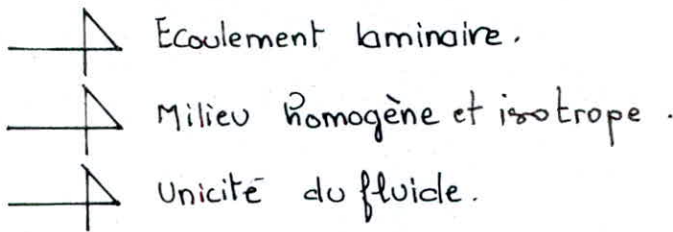 Ecoulement laminaire.
Milieu homogène et isotrope.
Unicité du fluide.